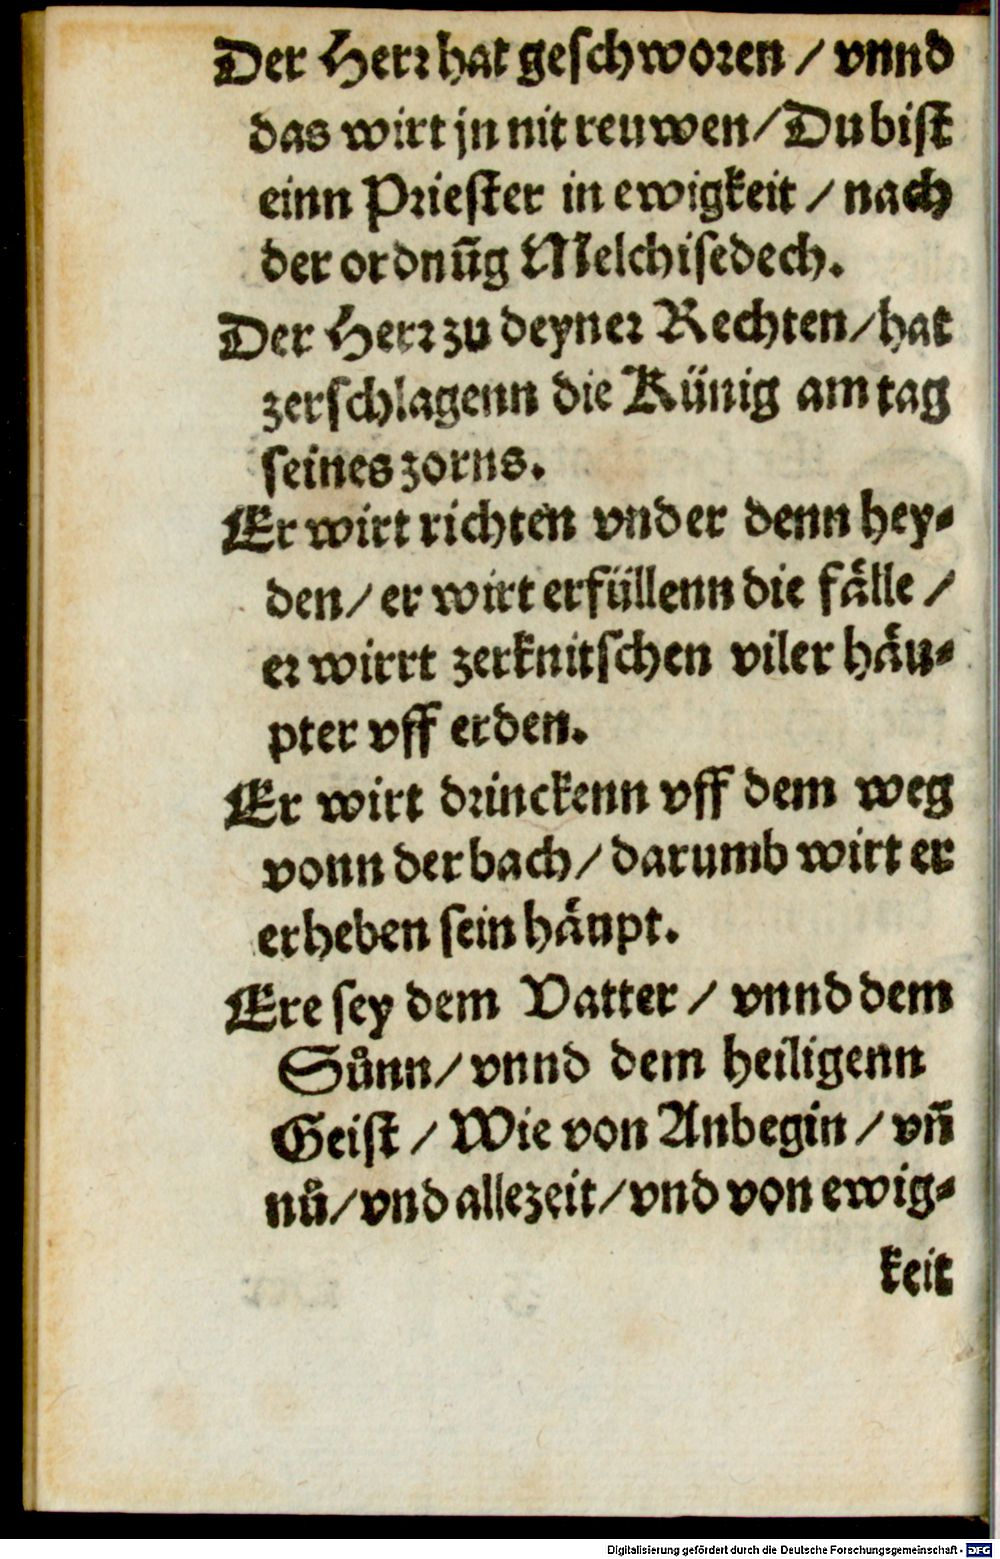 Der Herr hat geschworen / vnnd
das wirt jn nit reuwen / Du bist
einn Priester in ewigkeit / nach
der ordnūg Melchisedech.
Der Herr zu deyner Rechten / hat
zerschlagenn die Künig am tag
seines zorns.
Er wirt richten vnder denn hey⸗
den / er wirt erfüllenn die fälle /
er wirrt zerknitschen viler häu⸗
pter vff erden.
Er wirt drinckenn vff dem weg
vonn der bach / darumb wirt er
erheben sein häupt.
Ere sey dem Vatter / vnnd dem
Sůnn / vnnd dem heiligenn
Geist / Wie von Anbegin / vñ
nů / vnd allezeit / vnd von ewig⸗
keit
Digitalisierung gefördert durch die Deutsche Forschungsgemeinschaft - DFG